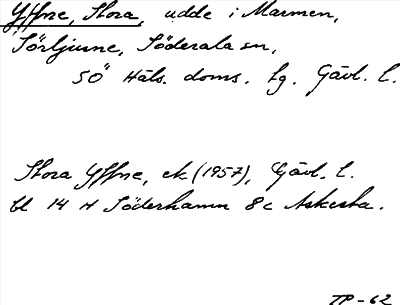 Yffne, Stora, udde i Marmen,
Sörljusne, Söderala sn,
SÖ Häls. doms. hg. Gävl. l.
Stora Yffne, ek (1957), Gävl. l.
bl 14 H Söderhamn 8 c Askesta.
TP-62